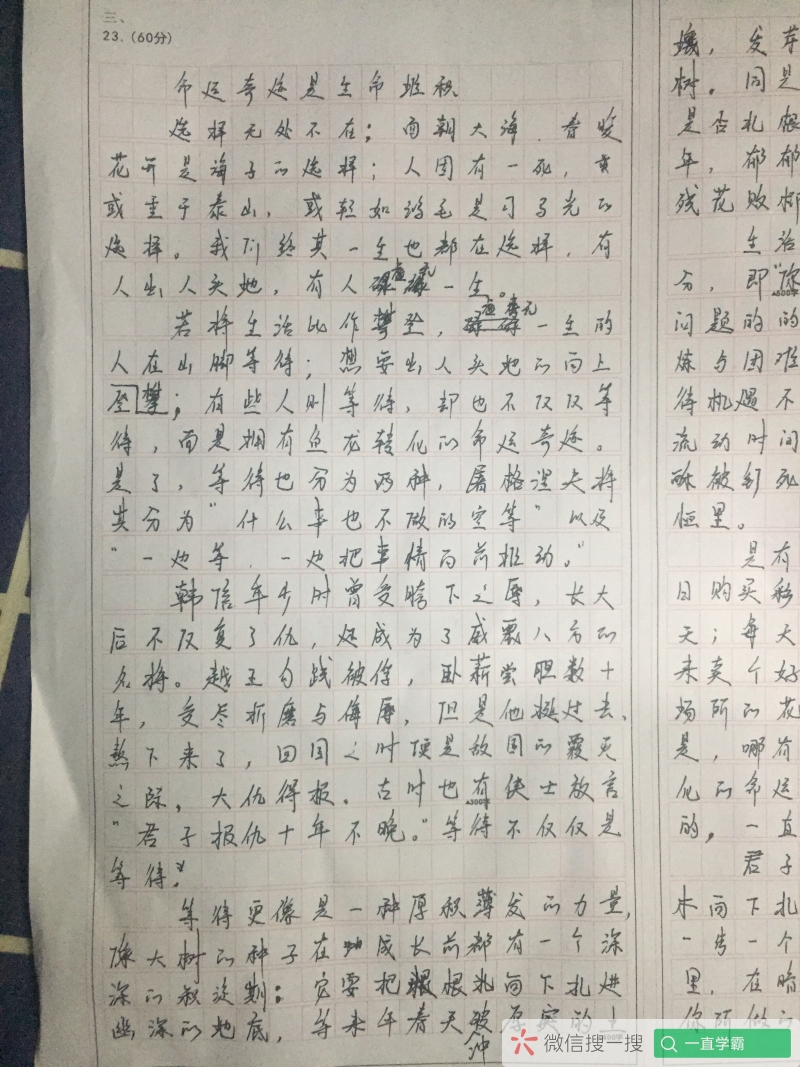 三、
23.(60分)
命运奇迹是生命堆积
选择无处不在；面朝大海，春暖
花开是海子的选择；人固有一死，
或重于泰山，或轻如鸿毛是司马光的
选择。我们终其一生也都在选择，有
人出人头地，有人虚无一生。
若将生活比作攀登，虚无一生的
人在山脚等待；想要出人头地的向上
登攀；有些人则等待，却也不仅仅等
待，而是拥有鱼龙转化的命运奇迹。
是了，等待也分为两种，屠格涅夫将
其分为“什么事也不做的空等”以及
“一边等，一边把事情向前推动。”
韩信年少时曾受胯下之辱，长大
后不仅复了仇，还成为了威震八方的
名将。越王勾践被俘，卧薪尝胆数十
年，受尽折磨与侮辱，但是他挺过去、
熬下来了，回国之时便是敌国的覆灭
之际，大仇得报。古时也有侠士放言
“君子报仇十年不晚。”等待不仅仅是
等待。
等待更像是一种厚积薄发的力量，
像大树的种子在成长前都有一个深
深的叙旋期：它要把根向下扎进
幽深的地底，等来年春天破厚实的土
冲
，发芽
树。同是
是否扎根
年，郁郁
残花败柳
生活
分，即“你
问题的的
炼与困难
待机遇不
流动时间
稣被钉死
恒里。
是有
日购买彩
天；每天
来卖个好
场所的花
是，哪有
化的命运
的，一直
君子
木向下扎
一告一个
里，在暗
你所做的
微信搜一搜
一直学霸